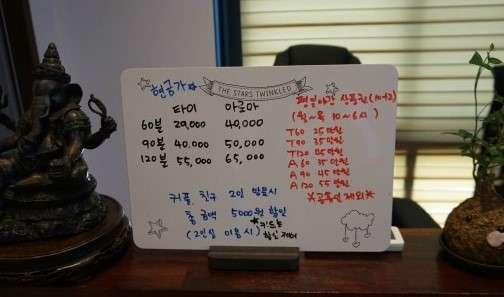 현금가
THE STARS TWINKLED
타이 아로마
60분 29,000 40,000
90분 40,000 50,000
120분 55,000 65,000
커플, 친구 2인 방문시
총 금액 5000원 할인
(2인실 이용시)
카드는
할인 제외
평일야간 상품권 (10+2)
(월~목 10~6시)
T60 25만원
T90 35만원
T120 45만원
A60 35만원
A90 45만원
A120 55만원
※공휴일 제외※